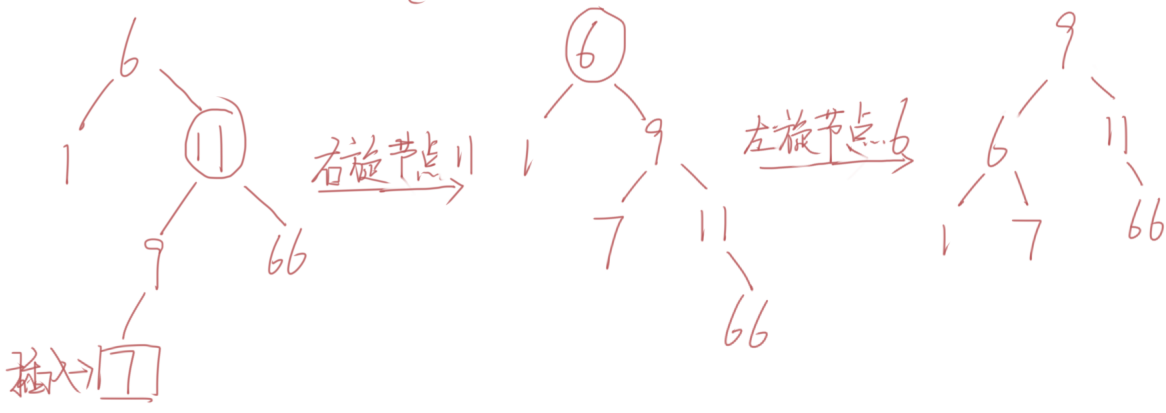 6
1
11
9
66
插入→7
右旋节点11
6
1
9
7
11
66
左旋节点6
9
6
11
1
7
66